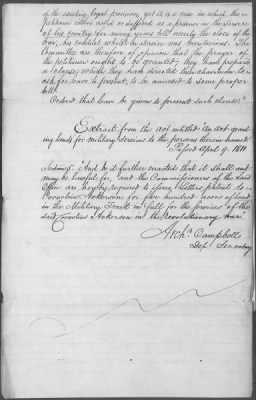 of the existing legal provision, yet it is a case in which the
petitioner either acted or suffered as a prisoner in the service
of his country for many years till nearly the close of the
war, his conduct whilst in service was meritorious. The
Committee are therefore of opinion that the prayer of
the petitioner ought to be granted; they have prepared
a clause which they have directed their chairman to
ask for leave to present, to be annexed to some proper
bill.
Ordered that leave be given to present such clause.
Extract from the act entitled An act grant
ing lands for military services to the persons therein named
Passed April 9. 1811
Section 5. And be it further enacted that it shall and
may be lawful for, and the Commissioners of the Land
Office are hereby required to issue letters patent to
Cornelius Ackerson for five hundred acres of land
in the Military Tract in full for the services of the
said Cornelius Ackerson in the Revolutionary War.
Archd. Campbell
Dep Secretary